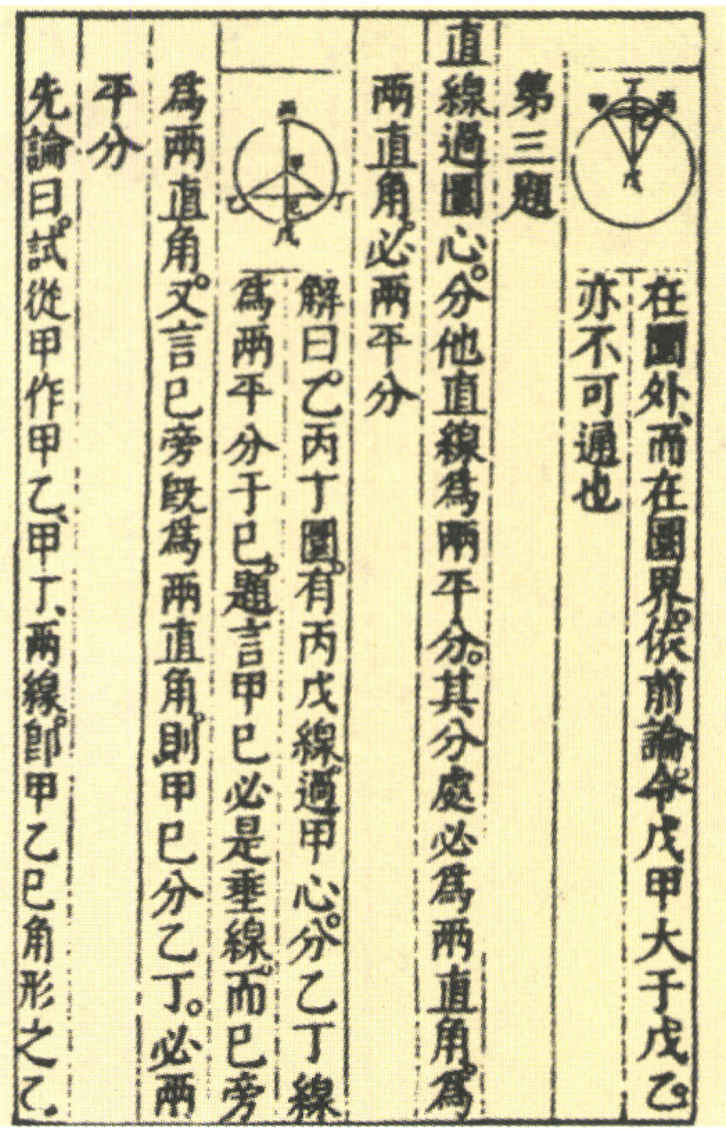 在圜外、而在圜界。依前論。令戊甲大于戊乙。
亦不可通也
第三題
直線過圜心。分他直線為兩平分。其分處必為兩直角。為
兩直角。必兩平分
解曰。乙丙丁圜。有丙戊線。過甲心。分乙丁線
為兩平分于巳。題言甲巳必是垂線。而巳旁
為兩直角。又言巳旁旣為兩直角。則甲巳分乙丁。必兩
平分
先論曰。試從甲作甲乙、甲丁、兩線。卽甲乙巳角形之乙
丁
甲
丙
乙
戊
丙
甲
乙
巳
丁
戊